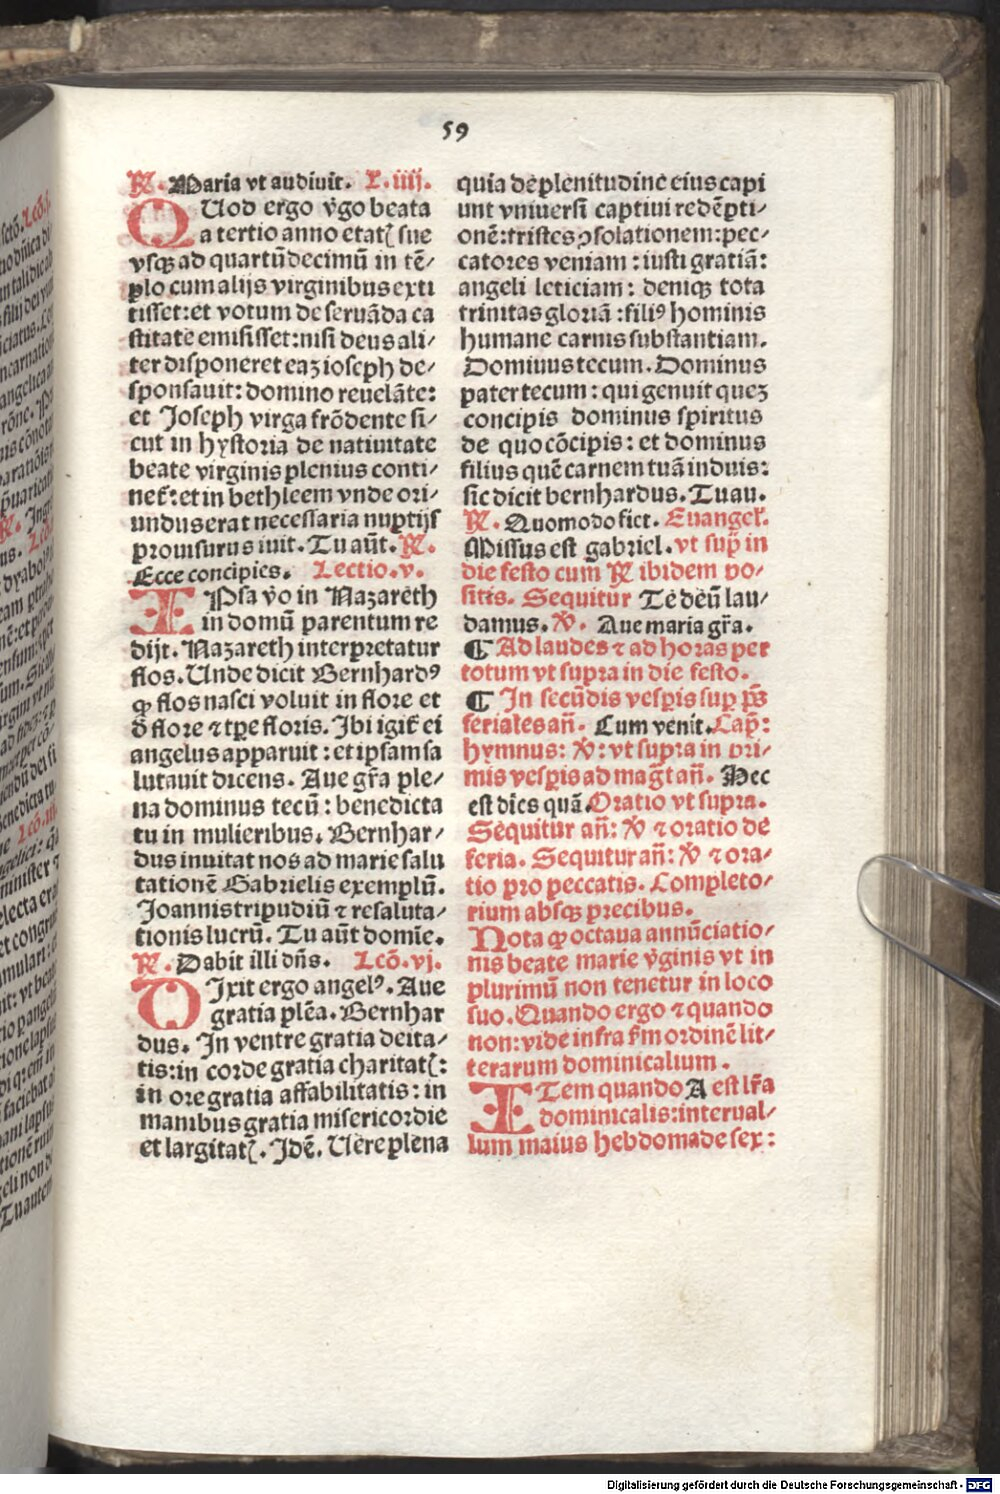 59
℟. Maria vt audiuit. L.iiij.
QUod ergo v̓go beata
a tertio anno etatꝭ sue
vsqꝫ ad quartū decimū in tē⸗
plo cum alijs virginibus exti
tisset: et votum de seruāda ca
stitate emisisset: nisi deus ali⸗
ter disponeret eaꝫ ioseph de⸗
sponsauit: domino reuelāte:
et Joseph virga frōdente si⸗
cut in hystoria de natiuitate
beate virginis plenius conti⸗
net̄: et in bethleem vnde ori⸗
undus erat necessaria nuptijs
prouisurus iuit. Tu aūt. ℟.
Ecce concipies. Lectio.v.
IPsa v̓o in Nazareth
in domū parentum re
dijt. Nazareth interpretatur
flos. Unde dicit Bernhardꝰ
ꝙ flos nasci voluit in flore et
d̓ flore ⁊ tp̄e floris. Ibi igit̄ ei
angelus apparuit: et ipsam sa
lutauit dicens. Aue gr̄a ple⸗
na dominus tecū: benedicta
tu in mulieribus. Bernhar⸗
dus inuitat nos ad marie salu
tationē Gabrielis exemplū.
Joannis tripudiū ⁊ resaluta⸗
tionis lucrū. Tu aūt domīe.
℟. Dabit illi dn̄s. Lcō.vj.
DIxit ergo angelꝰ. Aue
gratia plēa. Bernhar
dus. In ventre gratia deita⸗
tis: in corde gratia charitatꝭ:
in ore gratia affabilitatis: in
manibus gratia misericordie
et largitatꝭ. Idē. Uere plena
quia de plenitudine eius capi
unt vniuersi captiui redēpti⸗
onē: tristes ꝯsolationem: pec⸗
catores veniam: iusti gratiā:
angeli leticiam: deniqꝫ tota
trinitas gloriā: filiꝰ hominis
humane carnis substantiam.
Dominus tecum. Dominus
pater tecum: qui genuit queꝫ
concipis dominus spiritus
de quo cōcipis: et dominus
filius quē carnem tuā induis:
sic dicit bernhardus. Tu au.
℟. Quomodo fiet. Euangel̄.
Missus est gabriel. vt supͣ in
die festo cum ℟ ibidem po⸗
sitis. Sequitur Te deū lau⸗
damus. ℣. Aue maria gr̄a.
¶ Ad laudes ⁊ ad horas per
totum vt supra in die festo.
¶ In secūdis vesperis sup ps̄
feriales an̄. Cum venit. Cap̄:
hymnus: ℣: vt supra in pri⸗
mis vesperis ad mag̅t an̄. Hec
est dies quā. Oratio vt supra.
Sequitur an̄: ℣ ⁊ oratio de
feria. Sequitur an̄: ℣ ⁊ ora⸗
tio pro peccatis. Completo⸗
rium absqꝫ precibus.
Nota ꝙ octaua annūciatio⸗
nis beate marie v̓ginis vt in
plurimū non tenetur in loco
suo. Quando ergo ⁊ quando
non: vide infra s̄m ordinē lit⸗
terarum dominicalium.
ITem quando A est lr̄a
dominicalis: interual⸗
lum maius hebdomade sex:
Digitalisierung gefördert durch die Deutsche Forschungsgemeinschaft - DFG